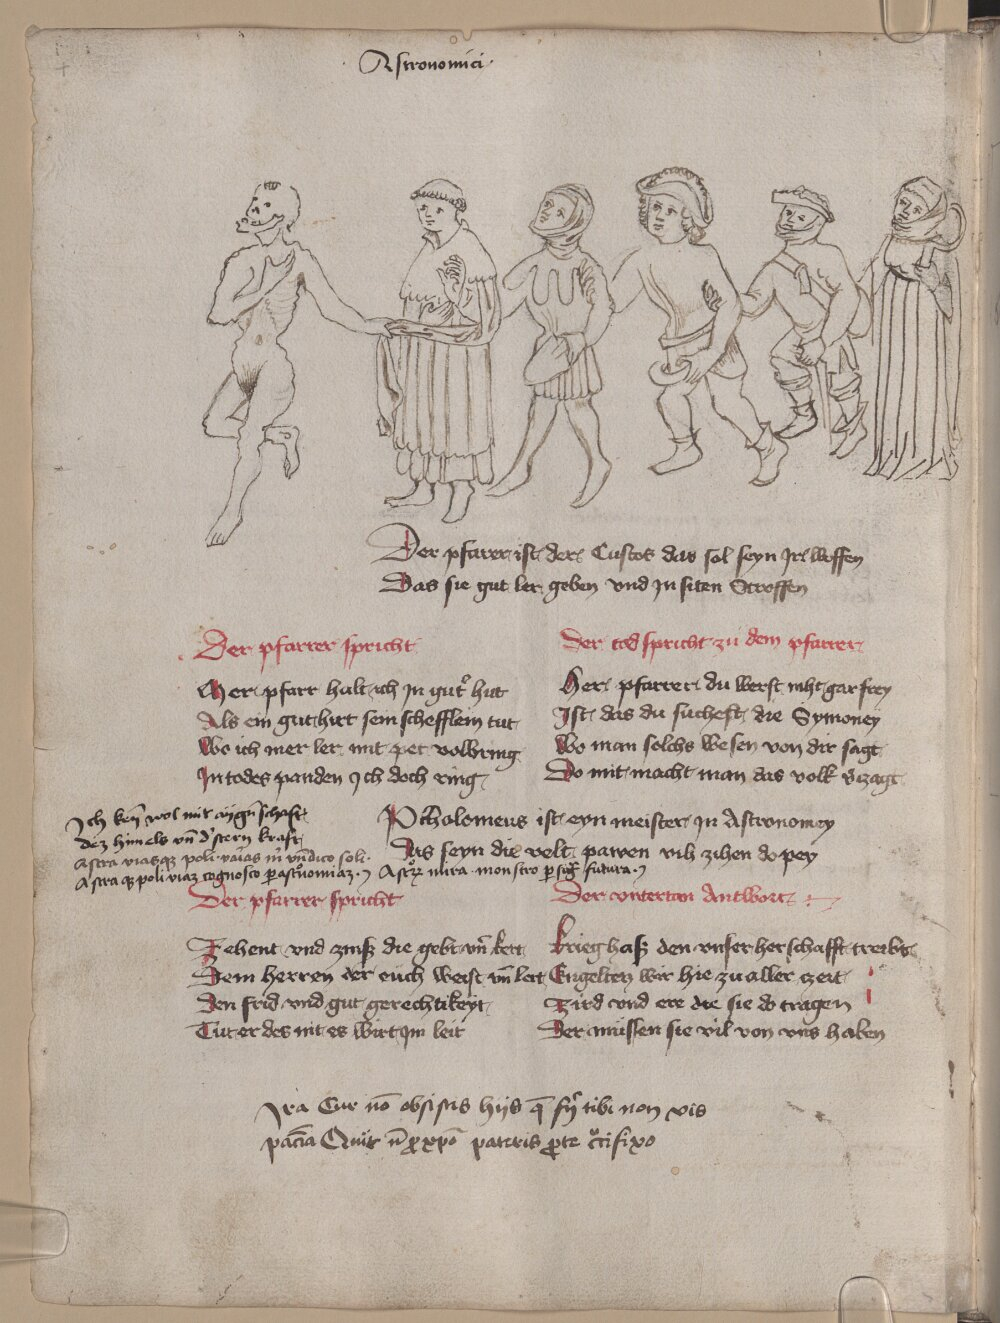 Astronomici
Der pfarrer ist der Custos das sol seyn Ir weffen
Das sie gut ler geben vnd In siten Stroffen
Der pfarrer spricht
Her pfarr halt ich In gut hut
Als ein gut hirt sein schefflein tut
Wo ich mer ler mit pet volbring
In todes panden Ich doch ring
Der tod spricht zu dem pfarrer
Her pfarrer du werst niht gar frey
Ist das du suchest die Symoney
Wo man solchs wesen von dir sagt
Do mit macht man das volk vzagt
Ich ken wol mit schafft
Dez himels vn d stern kraft
Astra viasqz poli
Astra qz poli viaz cognosco p astronomiaz
Ptholomeus ist eyn meister In Astronomey
Das seyn die velt pawen vih zihen do pey
mira monstro p sig futura
Der pfarrer spricht
Zehent vnd zinß die gebt vn
Dem herren der euch weist vn lert
Den frid vnd gut gerechtikeyt
Tut er des nit es wirt Im leit
Der vntertan Antwort
krieg haß den vnser herschafft treibt
Engelten wir hie zu aller zeit
zird vnd ere die sie do tragen
Der mussen sie vil von vns haben
Ira Cur no obsistis hijs q tibi non vis
pateris pte